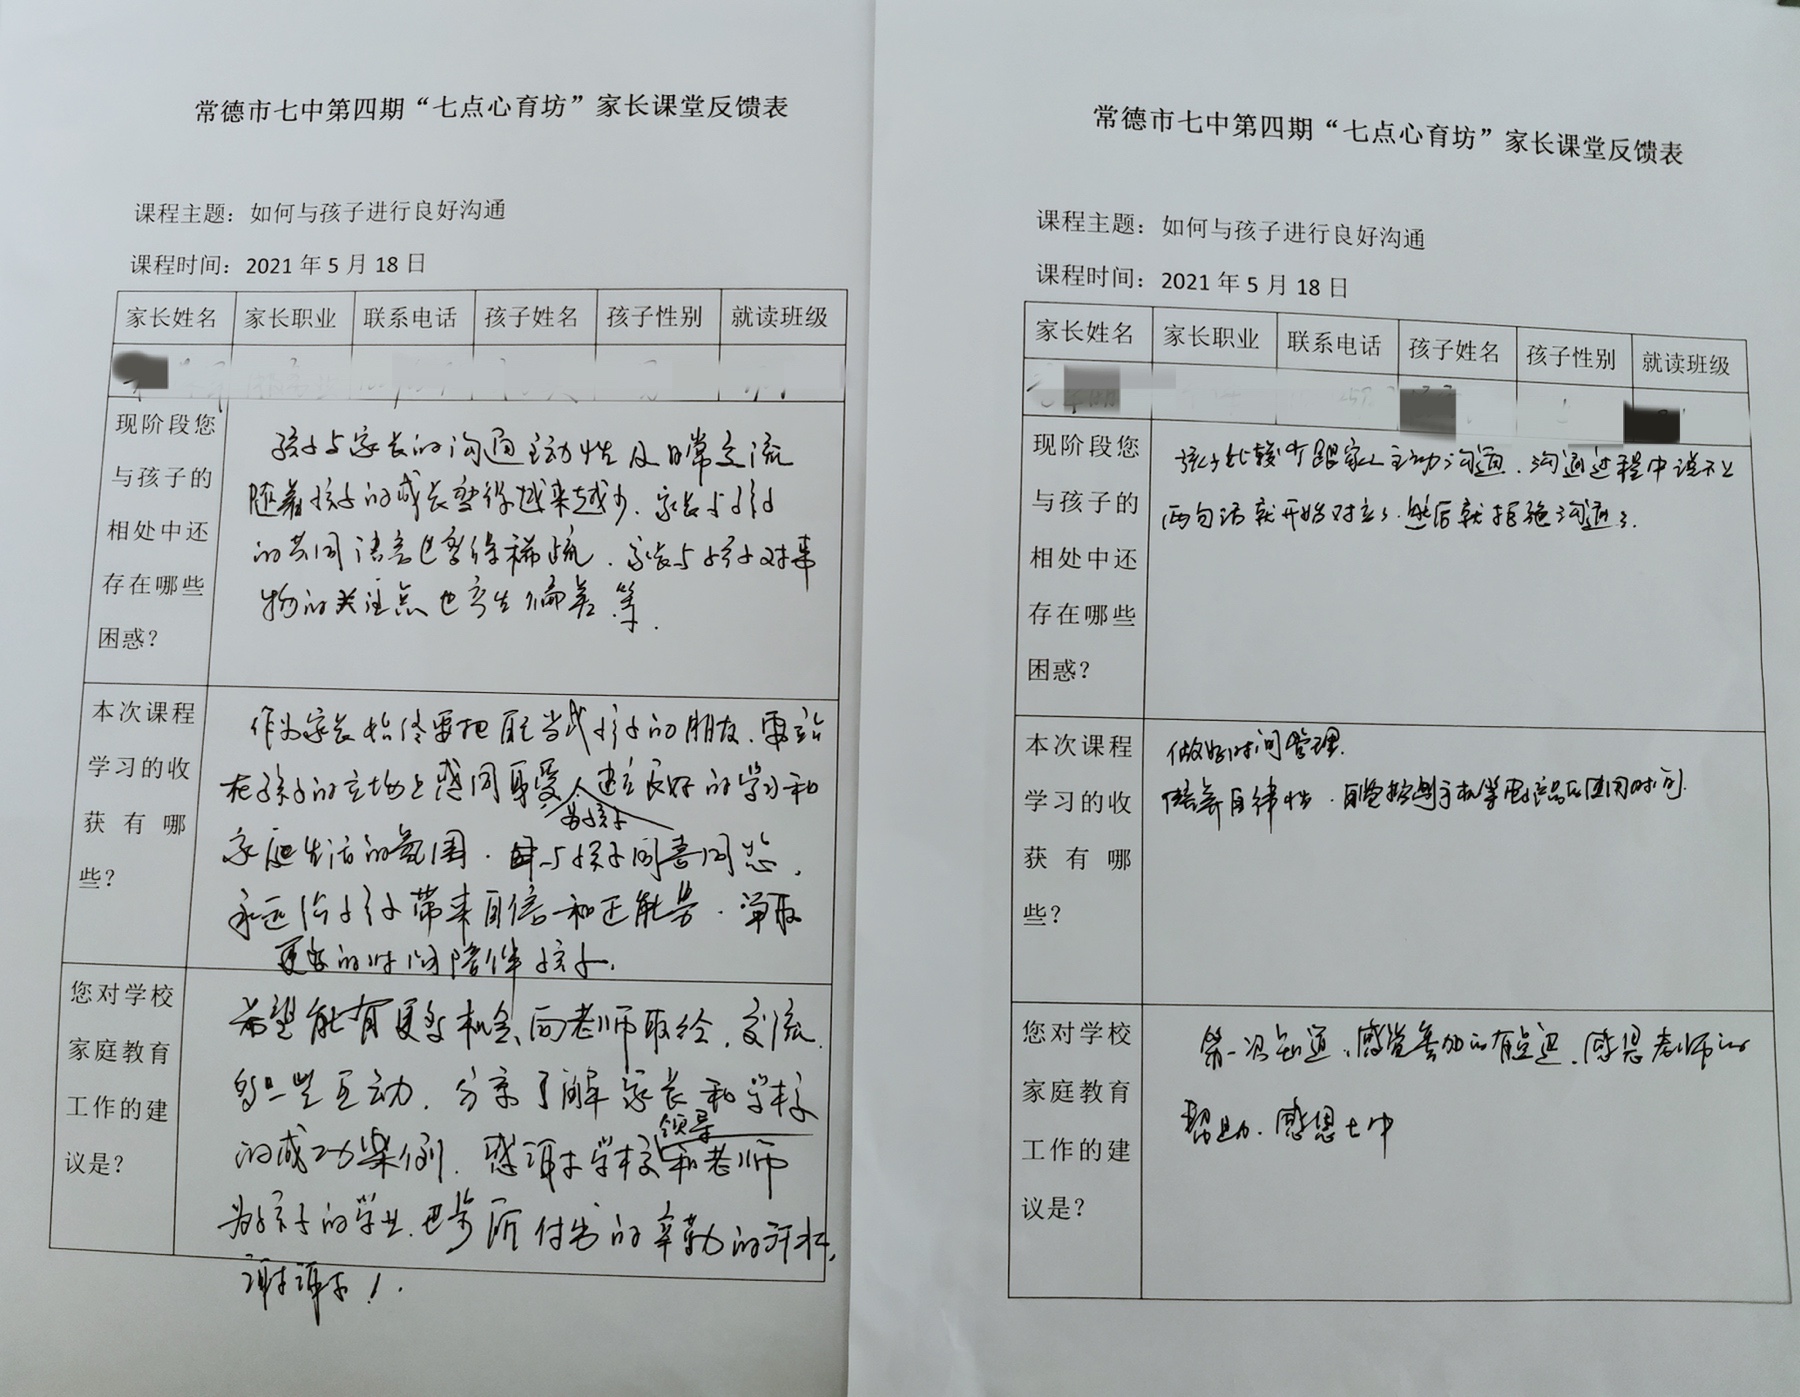 常德市七中第四期“七点心育坊”家长课堂反馈表
课程主题：如何与孩子进行良好沟通
课程时间：2021年5月18日
家长姓名 家长职业 联系电话 孩子姓名 孩子性别 就读班级
现阶段您
与孩子的
相处中还
存在哪些
困惑？
孩子与家长的沟通主动性及日常交流
随着孩子的成长变得越来越少，家长与孩子
的共同语言也变得稀疏，家长与孩子对事
物的关注点也产生偏差等.
本次课程
学习的收
获有哪
些？
作为家长始终要把自己当成孩子的朋友，要站
在孩子的立场上感同身受，为孩子建立良好的学习和
家庭生活的氛围，与孩子同喜同悲，
永远给孩子带来自信和正能量，争取
更多的时间陪伴孩子.
您对学校
家庭教育
工作的建
议是？
希望能有更多机会向老师取经，交流，
多一些互动，分享了解家长和学校
的成功案例，感谢学校领导和老师
为孩子的学业进步所付出的辛勤的汗水，
谢谢！
常德市七中第四期“七点心育坊”家长课堂反馈表
课程主题：如何与孩子进行良好沟通
课程时间：2021年5月18日
家长姓名 家长职业 联系电话 孩子姓名 孩子性别 就读班级
现阶段您
与孩子的
相处中还
存在哪些
困惑？
孩子比较少跟家人主动沟通，沟通过程中说不上
两句话就开始对立了，然后就拒绝沟通了.
本次课程
学习的收
获有哪
些？
做好时间管理.
培养自律性，自觉控制手机等电子产品的使用时间.
您对学校
家庭教育
工作的建
议是？
第一次知道，感觉参加的有点迟，感恩老师的
帮助，感恩七中